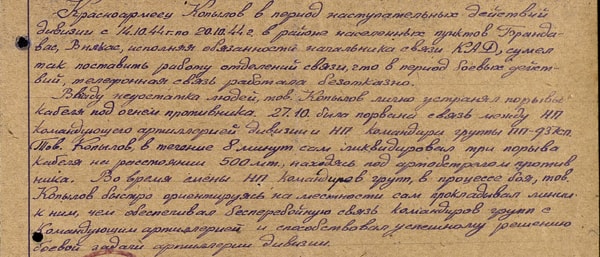 Красноармеец Копылов в период наступательных действий
дивизии с 14.10.44 г. по 20.10.44 г. в районе населенных пунктов
вас, исполняя обязанности начальника связи КАД, сумел
так поставить работу отделений связи, что в период боевых дейст-
вий, телефонная связь работала безотказно.
Ввиду недостатка людей, тов. Копылов лично устранял порывы
кабеля под огнем противника. 27.10. была порвана связь между НП
командующего артиллерией дивизии и НП командира группы ПП-93 кп.
Тов. Копылов в течение 8 минут сам ликвидировал три порыва
кабеля на расстоянии 500 мт, находясь под артобстрелом против
ника. Во время смены НП командиров групп, в процессе боя, тов.
Копылов быстро ориентируясь на местности сам прокладывал линии
к ним, чем обеспечивал бесперебойную связь командиров групп с
командующим артиллерией и способствовал успешному решению
боевой задачи артиллерии дивизии.